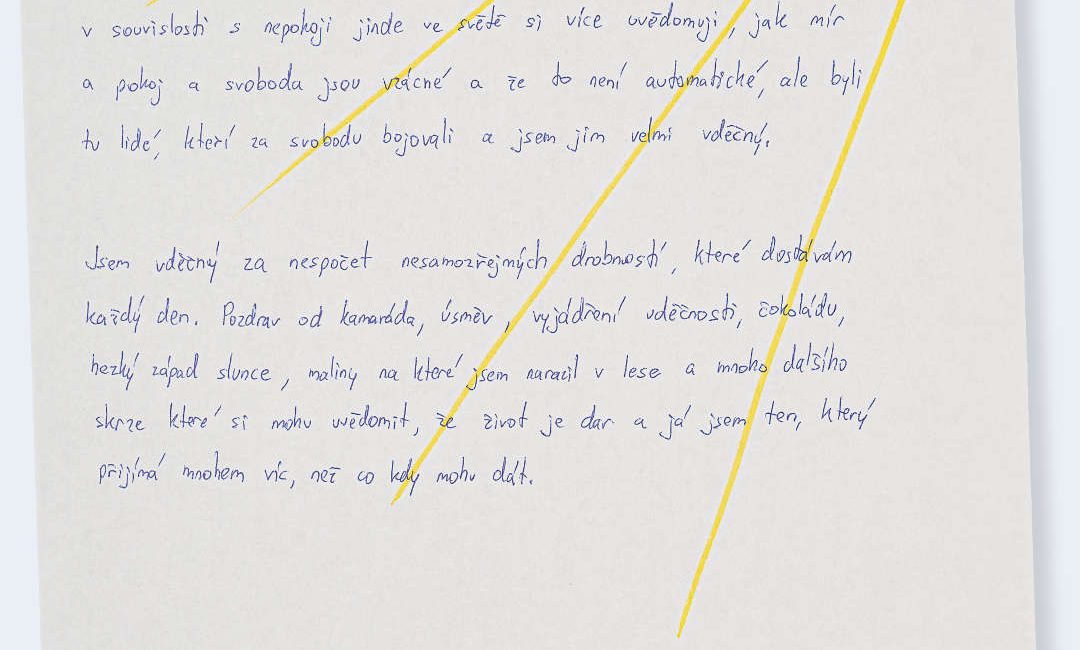 v souvislosti s nepokoji jinde ve světě si více uvědomuji, jak mír
a pokoj a svoboda jsou vzácné a že to není automatické, ale byli
tu lidé, kteří za svobodu bojovali a jsem jim velmi vděčný.
Jsem vděčný za nespočet nesamozřejmých drobností, které dostávám
každý den. Pozdrav od kamaráda, úsměv, vyjádření vděčnosti, čokoládu,
hezký západ slunce, maliny na které jsem narazil v lese a mnoho dalšího
skrze které si mohu uvědomit, že život je dar a já jsem ten, který
přijímá mnohem víc, než co kdy mohu dát.